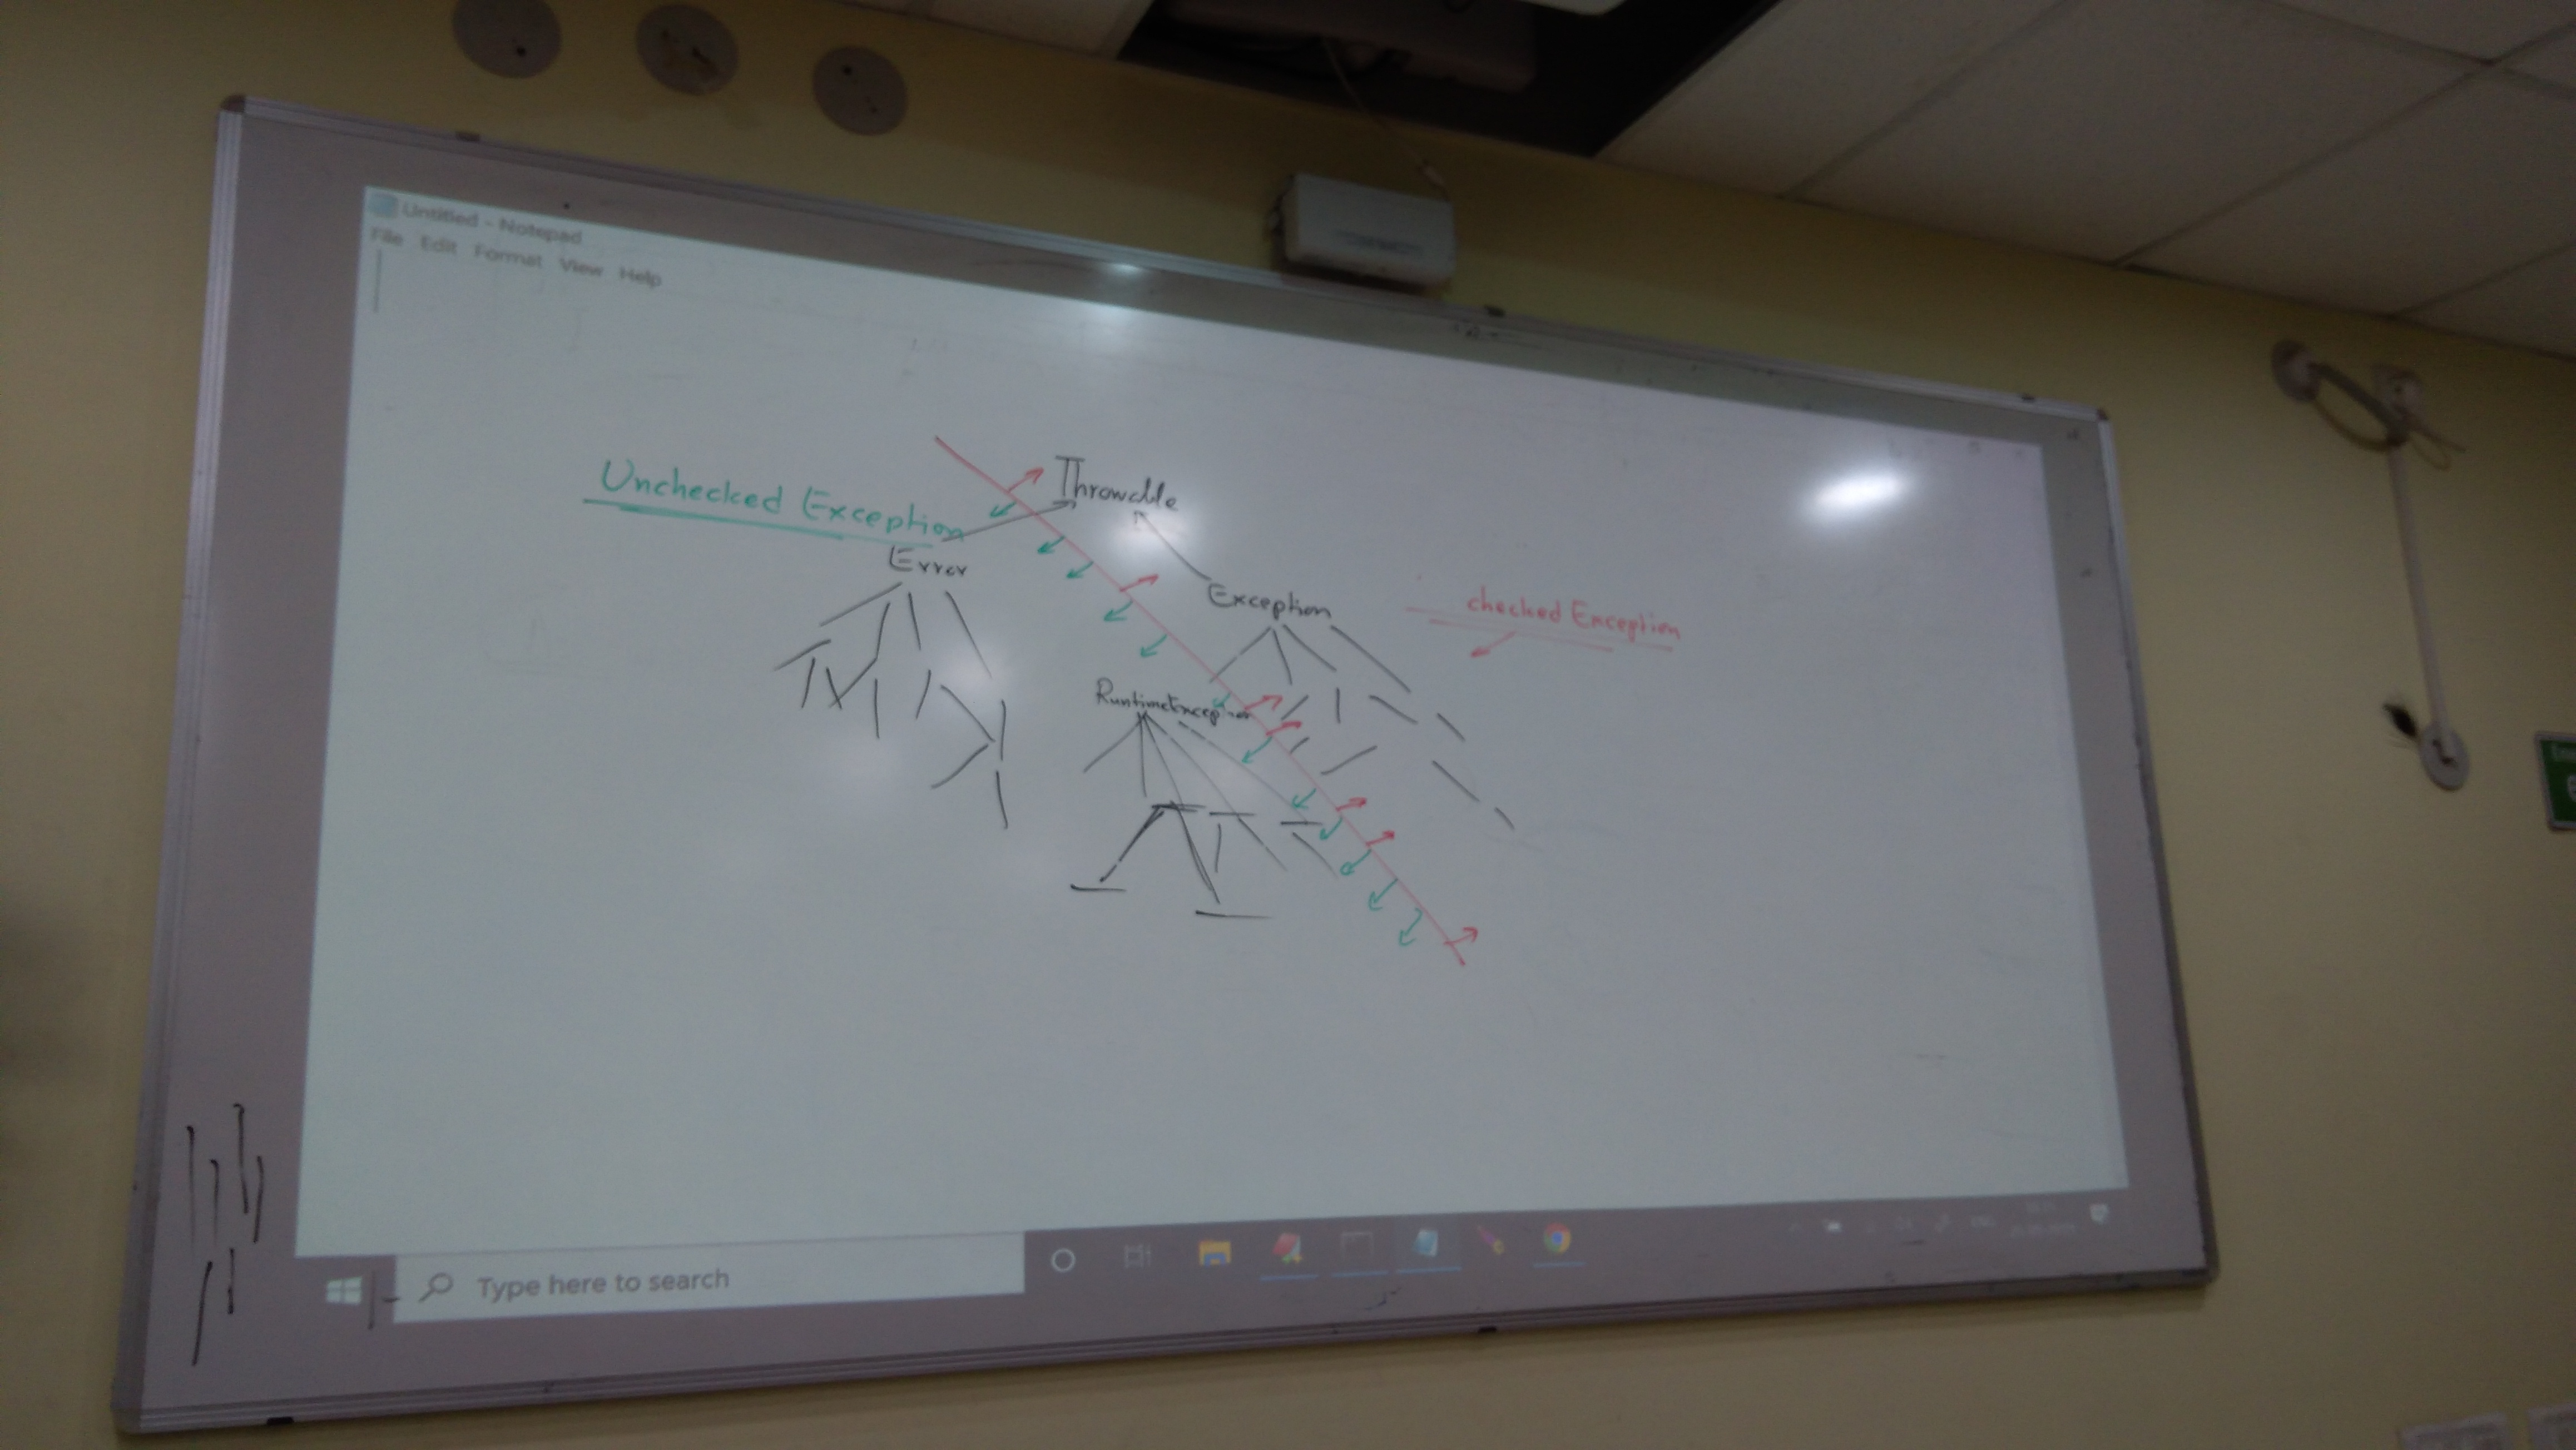 Untitled - Notepad
File Edit Format View Help
Throwable
Unchecked Exception
Error
Exception
checked Exception
RuntimeException
Type here to search